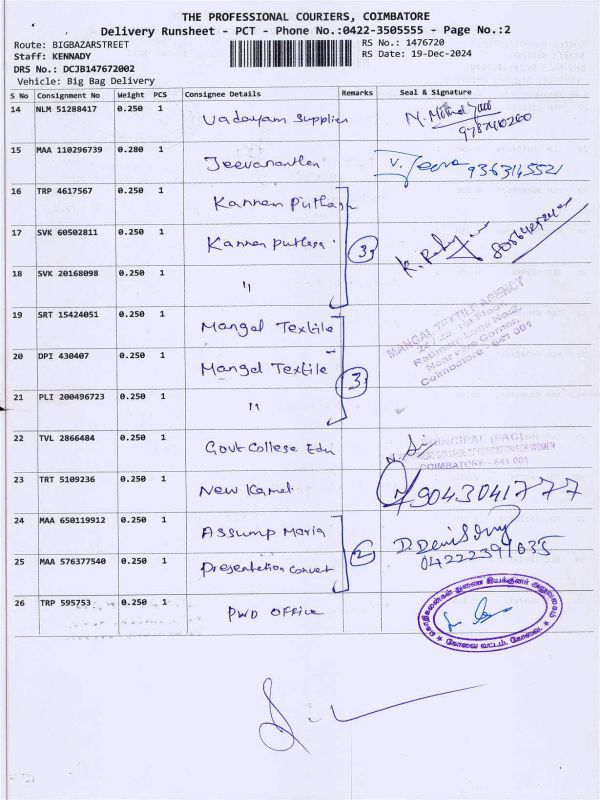 THE PROFESSIONAL COURIERS, COIMBATORE
Delivery Runsheet - PCT - Phone No.:0422-3505555 - Page No.:2
Route: BIGBAZARSTREET RS No.: 1476720
Staff: KENNADY RS Date: 19-Dec-2024
DRS No.: DCJB147672002
Vehicle: Big Bag Delivery
S No Consignment No Weight PCS Consignee Details Remarks Seal & Signature
14 NLM 51288417 0.250 1 Vadayam Supplier
15 MAA 110296739 0.280 1 Jeevananthan V. Jeeva 9363145521
16 TRP 4617567 0.250 1 Kannan Puthaga
17 SVK 60502811 0.250 1 Kannan Puthaga 3
18 SVK 20168098 0.250 1 "
19 SRT 15424051 0.250 1 Mangal Textile MANGAL TEXTILE AGENCY
20 DPI 430407 0.250 1 Mangal Textile 3 Coimbatore - 641 001
21 PLI 200496723 0.250 1 "
22 TVL 2866484 0.250 1 Govt College Edn PRINCIPAL (FAC)
COIMBATORE - 641 001
23 TRT 5109236 0.250 1 New Kamal 9043041777
24 MAA 650119912 0.250 1 Assump Maria
25 MAA 576377540 0.250 1 Presentation Convet 2 04222394035
26 TRP 595753 0.250 1 PWD Office கோவை வட்டம், கோவை.